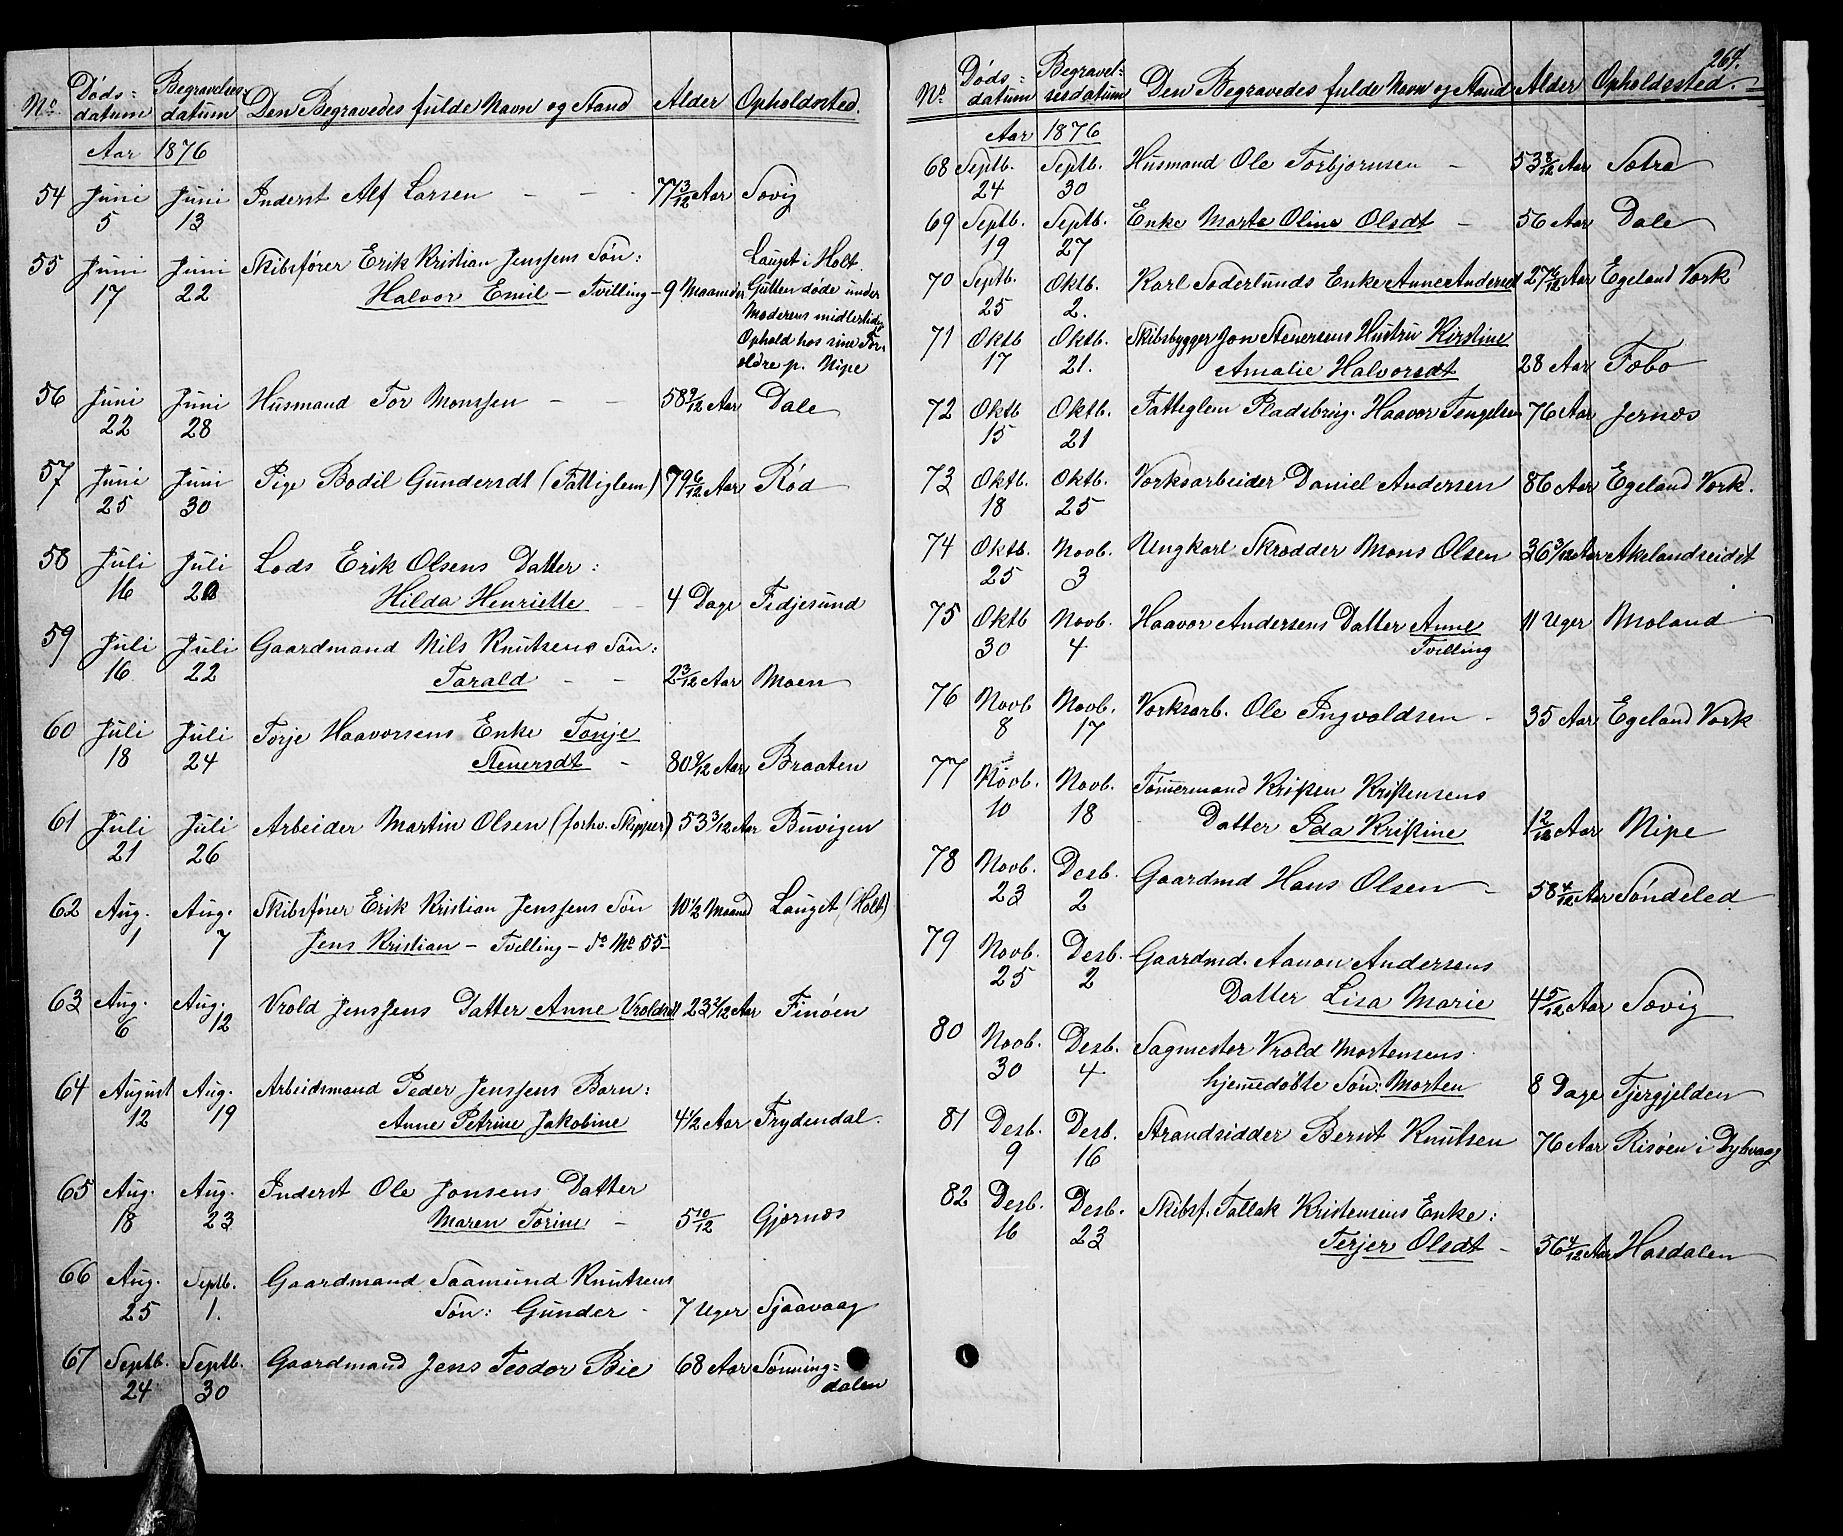 No. Döds- datum Begravelses- datum Den Begravedes fulde Navn og Stand Alder Opholdssted.
Aar 1876
54 Juni 5 Juni 13 Inderst Alf Larsen - - - 77 3/12 Aar Sævig
55 Juni 17 Juni 22 Skibsförer Erik Kristian Jenssens Sön:
Halvor Emil - Tvilling - 9 Maaneder
Lauget i Holt.
Gutten döde under
Moderens midlertidige
Ophold hos sine For-
ældre p. Nipe
56 Juni 22 Juni 28 Husmand Tor Monssen - - 58 9/12 Aar Dale
57 Juni 25 Juni 30 Pige Bodil Gundersdt (Fattiglem) 79 6/12 Aar Röd
58 Juli 16 Juli 20 Lods Erik Olsens Datter:
Hilda Henriette - - 4 Dage Fidjesund
59 Juli 16 Juli 22 Gaardmand Nils Knutsens Sön:
Tarald - - 2 3/12 Aar Moen
60 Juli 18 Juli 24 Torje Haavorsens Enke Tonje
Stenersdt - 80 9/12 Aar Braaten
61 Juli 21 Juli 26 Arbeider Martin Olsen (forhv. Skipper) 53 3/12 Aar Buvigen
62 Aug. 1 Aug. 7 Skibsförer Erik Kristian Jenssens Sön 10 1/2 Maaned Lauget (Holt)
Jens Kristian - Tvilling - do No 55 -
63 Aug. 6 Aug. 12 Vrold Jenssens Datter Anne Vroldsdt 23 2/12 Aar Finöen
64 August 12 Aug. 19 Arbeidsmand Peder Jenssens Barn:
Anne Petrine Jakobine 4 1/2 Aar Frydendal.
65 Aug. 18 Aug. 23 Inderst Ole Jonsens Datter
Maren Torine - 5 10/12 Gjernæs
66 Aug. 25 Septb. 1. Gaardmand Saamund Knutsens
Sön: Gunder - 7 Uger Sjaavaag
67 Septb. 24 Septb. 30 Gaardmand Jens Teodor Bie 68 Aar Sönning=
dalen
264.
No. Döds= datum Begravel= sesdatum Den Begravedes fulde Navn og Stand Alder Opholdssted.
Aar 1876
68 Septb. 24 Septb. 30 Husmand Ole Torbjornsen - 53 8/12 Aar Sætra
69 Septb. 19 Septb. 27 Enke Marte Oline Olsdt - 56 Aar Dale
70 Septb. 25 Oktb. 2. Karl Soderlunds Enke Anne Andersd 27 6/12 Aar Egeland Værk
71 Oktb 17 Oktb. 21. Skibsbygger Jon Stenersens Hustru Kirstine
Amalie Halvorsdt 28 Aar Fæbo
72 Oktb 15 Oktb. 21 Fattiglem Pladsbrug. Haavor Tengelsen 76 Aar Jernæs
73 Oktb. 18 Oktb. 25 Værksarbeider Daniel Andersen 86 Aar Egeland Værk.
74 Oktb. 25 Novb. 3 Ungkarl Skrædder Mons Olsen 36 3/12 Aar Akelandseidet
75 Oktb 30 Novb. 4 Haavor Andersens Datter Anne 11 Uger Moland
Tvilling
76 Novb 8 Novb. 17 Værksarb. Ole Ingvaldsen - 35 Aar Egeland Værk
77 Novb. 10 Novb. 18 Tömmermand Kristen Kristensens
Datter Ida Kristine 1 2/12 Aar Nipe
78 Novb. 23 Desb. 2 Gaardmd Hans Olsen - 58 4/12 Aar Söndeled
79 Novb. 25 Desb. 2 Gaardmd. Aanon Andersens
Datter Lisa Marie 4 5/12 Aar Sævig
80 Novb. 30 Desb. 4 Sagmester Vrold Mortensens
hjemmedöbte Sön: Morten 8 Dage Fjergjelden
81 Desb. 9 Desb. 16 Strandsidder Bernt Knutsen 76 Aar Risöen i Dybvaag
82 Desb. 16 Desb. 23 Skibsf. Tallak Kristensens Enke:
Terjer Olsdt - 36 4/12 Aar Hasdalen